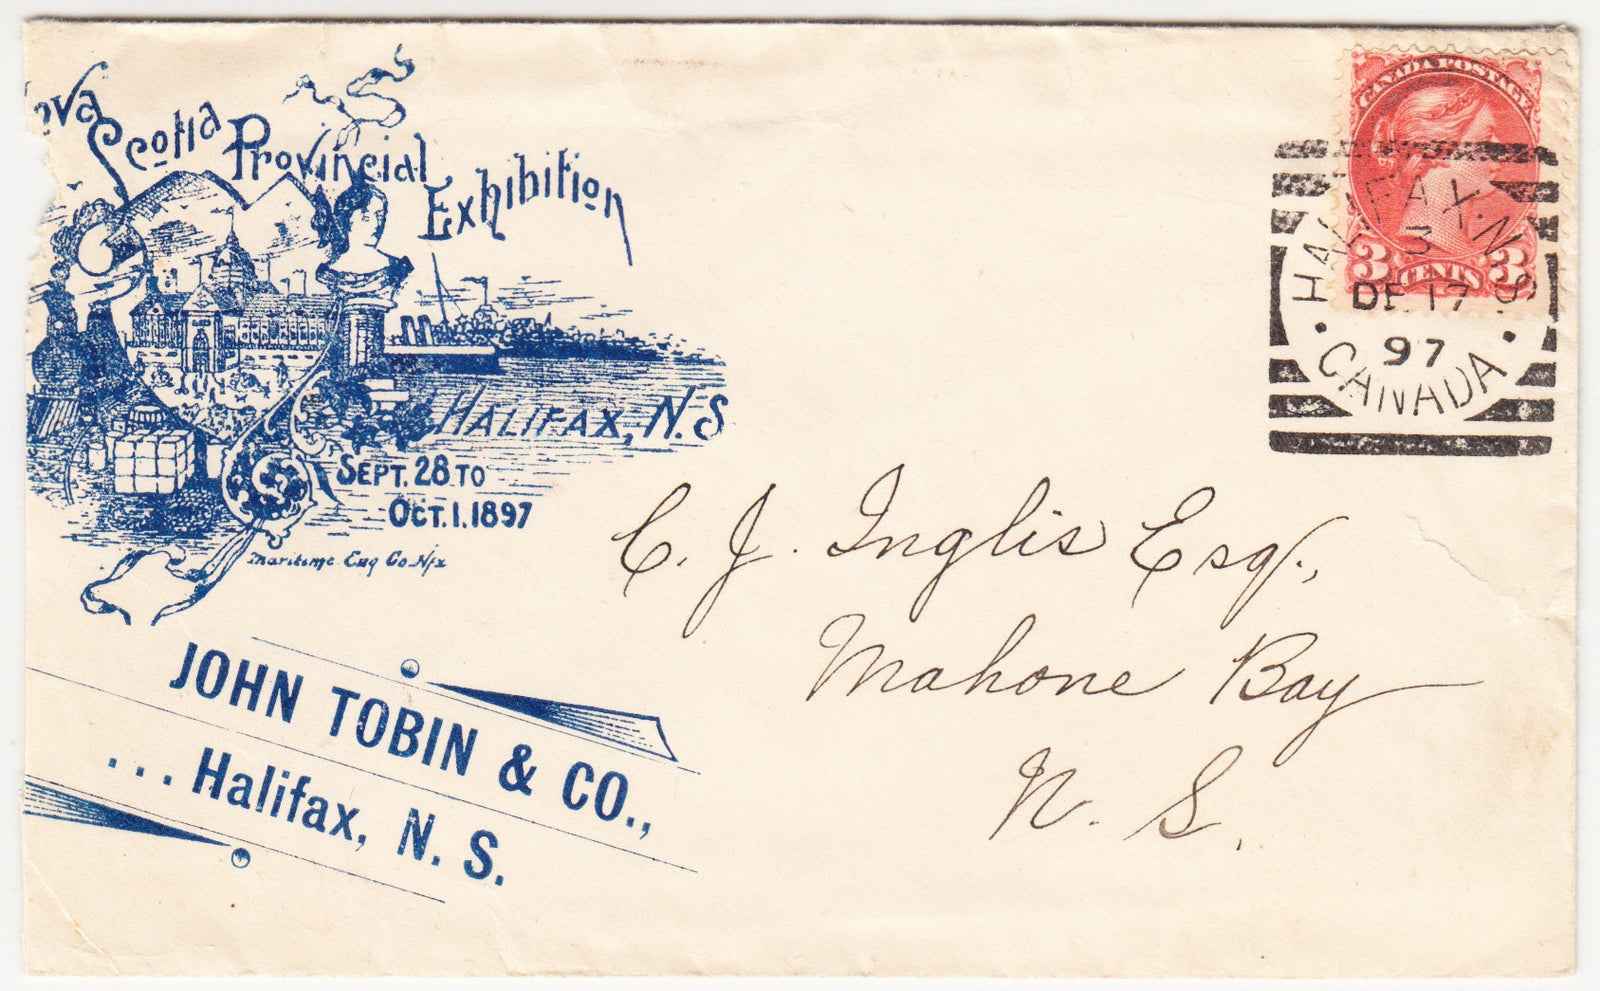 ova Scotia Provincial Exhibition
HALIFAX, N.S
SEPT. 28 TO
OCT. 1. 1897
Maritime. Eng Co. Hfx
JOHN TOBIN & CO.,
... Halifax, N. S.
CANADA POSTAGE
3 CENTS 3
HALIFAX. N.S.
3
DE 17
97
CANADA
C. J. Inglis Esq.,
Mahone Bay
N. S.